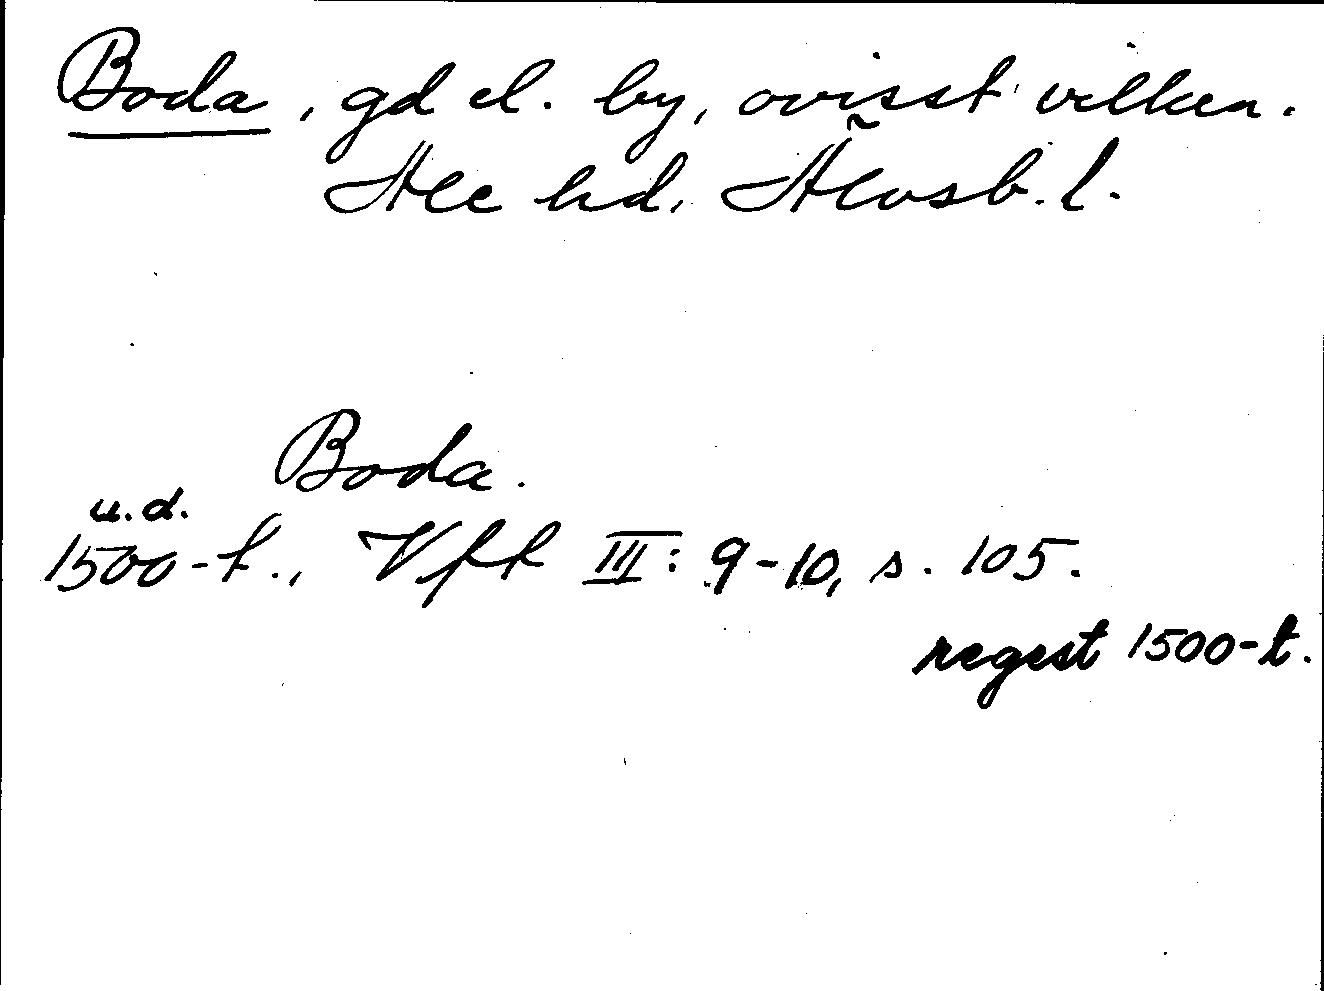 Boda, gd el. by, ovisst vilken.
Ale hd, Älvsb. l.
Boda.
u.d.
1500-t., Vfft III: 9-10, s. 105.
regest 1500-t.